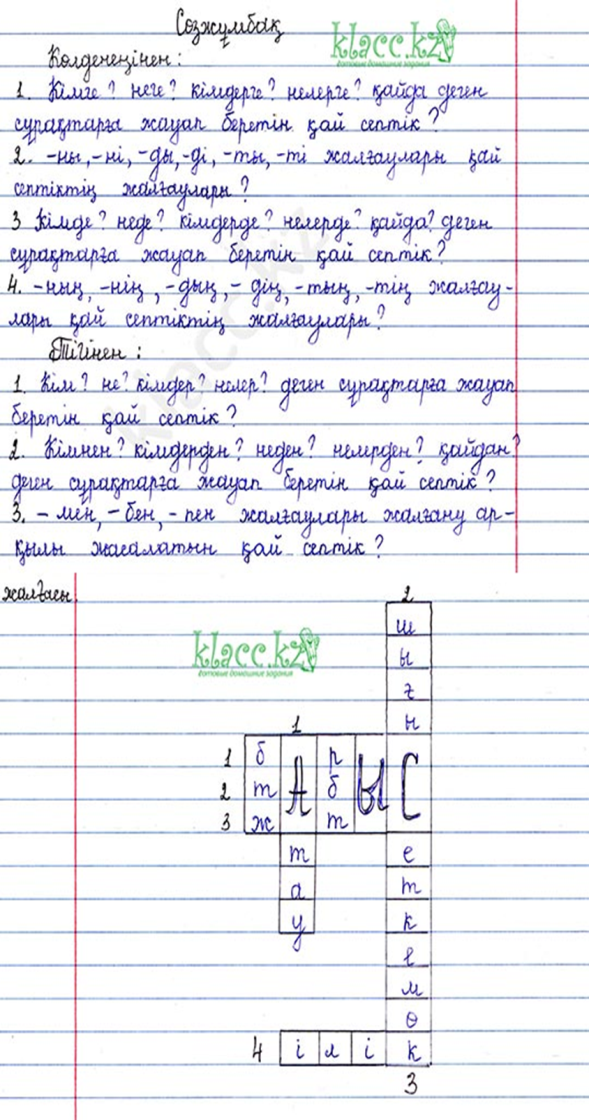 Сөзжұмбақ
klacc.kz
готовые домашние задания
Көлденеңінен:
1. Кімге? неге? кімдерге? нелерге? қайда деген
сұрақтарға жауап беретін қай септік?
2. -ны, -ні, -ды, -ді, -ты, -ті жалғаулары қай
септіктің жалғаулары?
3 Кімде? неде? кімдерде? нелерде? қайда? деген
сұрақтарға жауап беретін қай септік?
4. -ның, -нің, -дың, -дің, -тың, -тің жалғау-
лары қай септіктің жалғаулары?
Тігінен:
1. Кім? не? кімдер? нелер? деген сұрақтарға жауап
беретін қай септік?
2. Кімнен? кімдерден? неден? нелерден? қайдан?
деген сұрақтарға жауап беретін қай септік?
3. -мен, -бен, -пен жалғаулары жалғану ар-
қылы жасалатын қай септік?
жалғасы.
2
klacc.kz
готовые домашние задания
ш
ы
ғ
ы
1
1 б А р Ы С
2 т б
3 ж т
т е
а т
у к
е
м
ө
4 і л і к
3